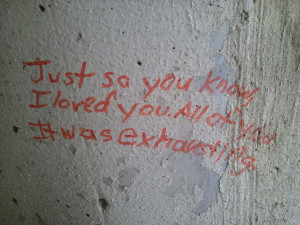 Just so you know,
I loved you. All of you
It was exhausting